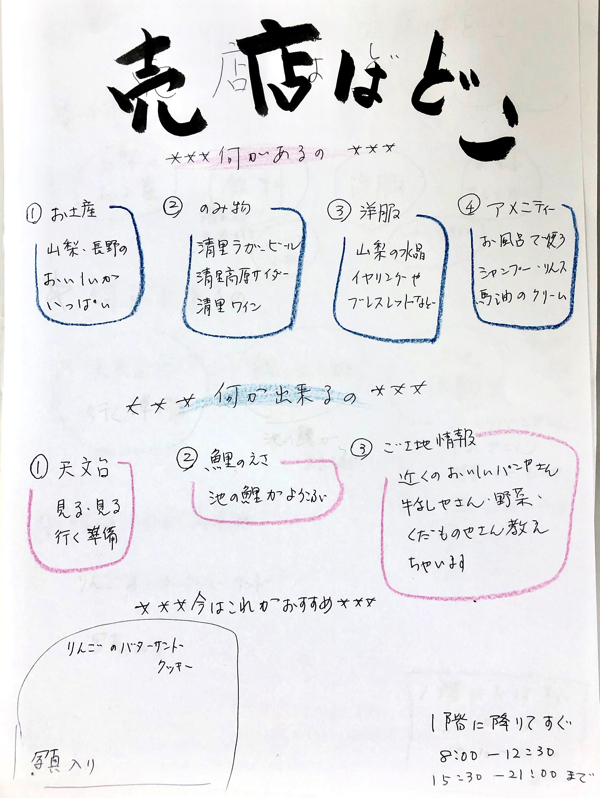 売店はどこ
***何があるの***
① お土産
山梨・長野の
おいしいが
いっぱい
② のみ物
清里ラガービール
清里高原サイダー
清里ワイン
③ 洋服
山梨の水晶
イヤリングや
ブレスレットなど
④ アメニティー
お風呂で使う
シャンプー・リンス
馬油のクリーム
***何が出来るの***
① 天文台
見る・見る
行く準備
② 鯉のえさ
池の鯉がよろこぶ
③ ご当地情報
近くのおいしいパンやさん
牛乳やさん・野菜・
くだものやさん教え
ちゃいます
***今はこれがおすすめ***
りんごのバターサンド
クッキー
写真入り
1階に降りてすぐ
8:00-12:30
15:30-21:00まで